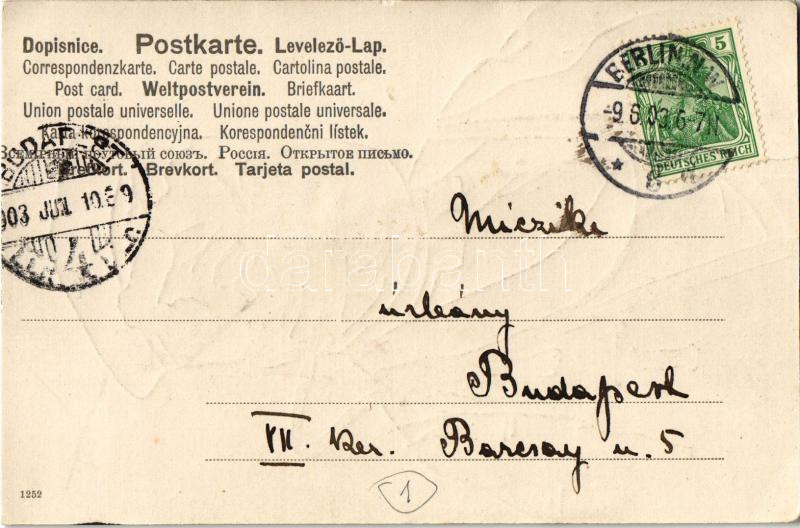 Dopisnice. Postkarte. Levelező-Lap.
Correspondenzkarte. Carte postale. Cartolina postale.
Post card. Weltpostverein. Briefkaart.
Union postale universelle. Unione postale universale.
Karta korespondencyjna. Korespondenční lístek.
Всемірный почтовый союзъ. Россія. Открытое письмо.
Brevkort. Tarjeta postal.
BERLIN N.W.
-9.6.03.6-7N.
5
DEUTSCHES REICH
BUDAPEST
903 JUN 10
Miczike
úrleány
Budapest
VII. ker. Barcsay u. 5
darabanth
1252
1